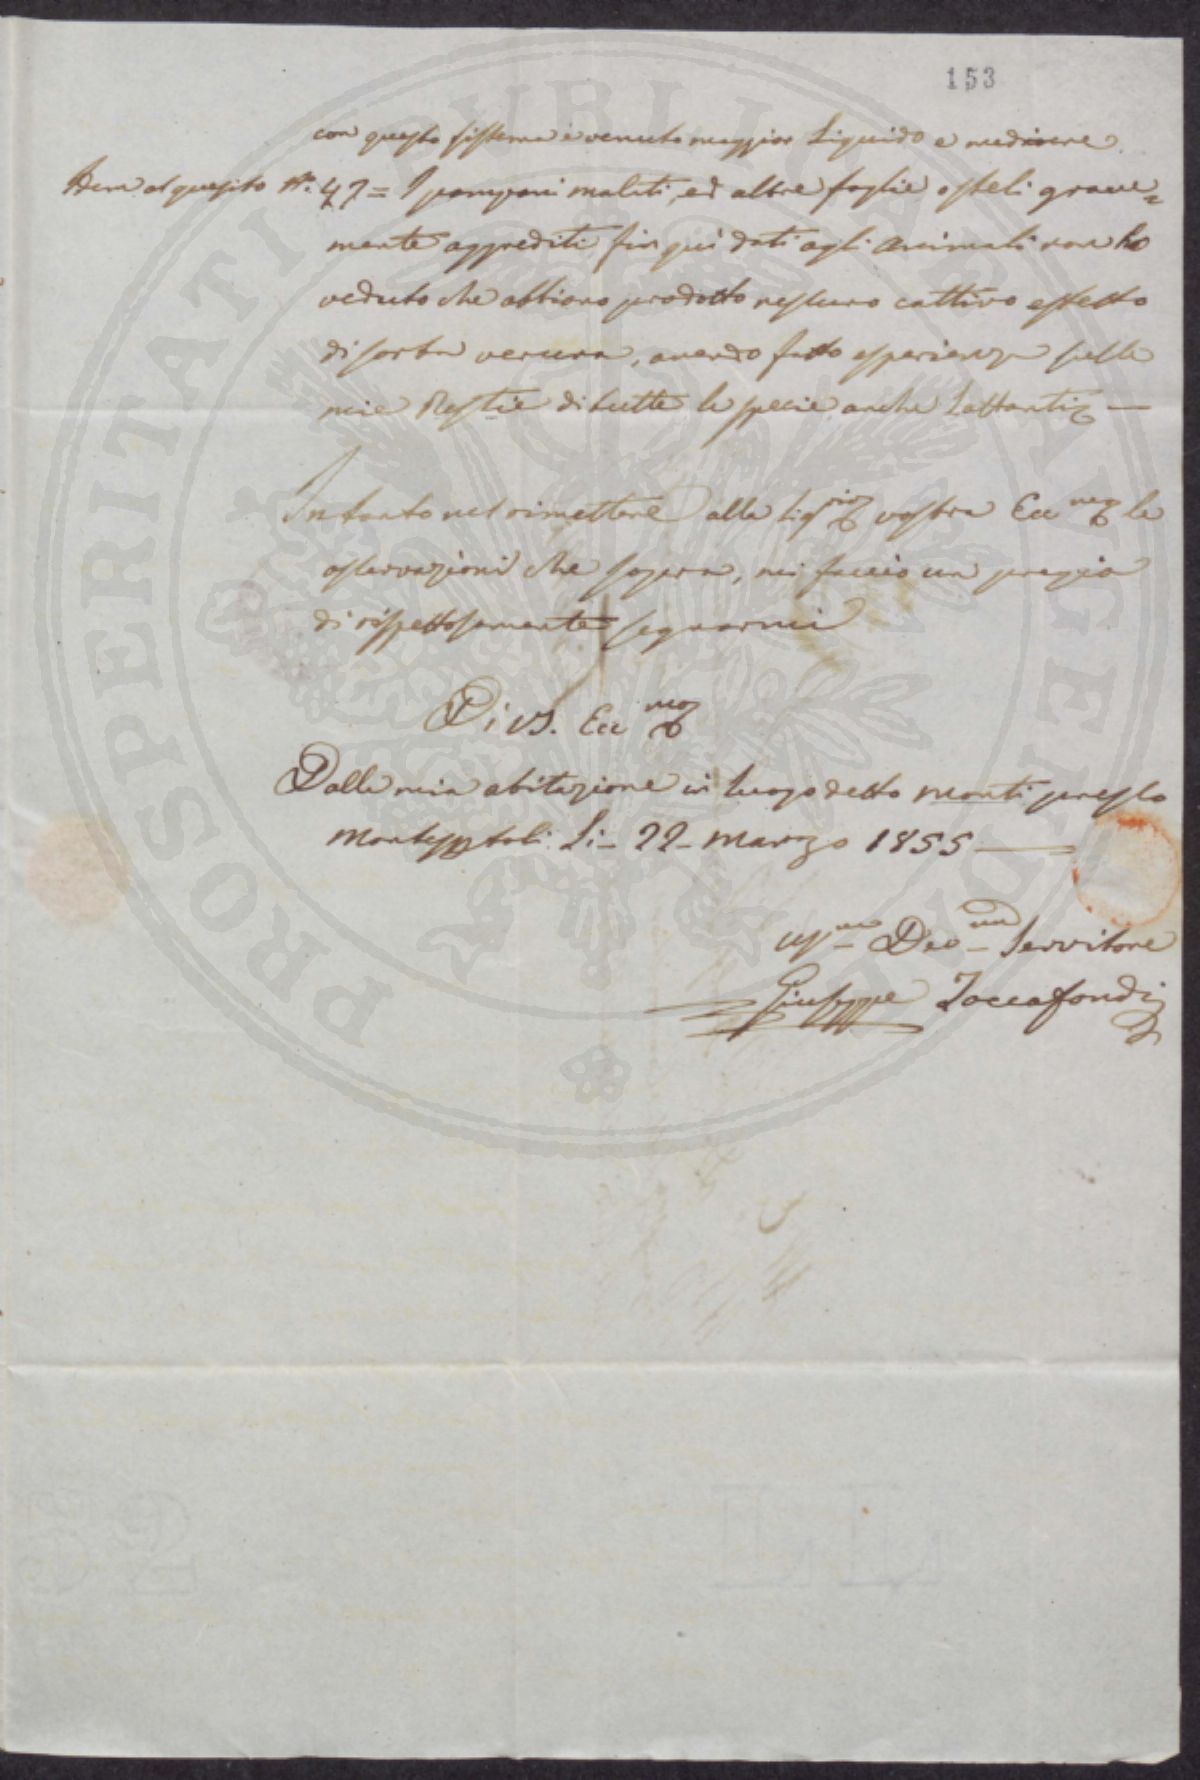 153
con questo sistema è venuto maggior Liquido e mediocre.
Idem al quesito N.º 47 = I pampani malati, ed altre foglie o steli grave=
mente aggrediti fin qui dati agli animali non ho
veduto che abbiano prodotto nessuno cattivo effetto
di sorta veruna, avendo fatto esperienza sulle
mie Bestie di tutte le specie anche Lattanti —
Intanto nel rimettere alla Sig.ria vostra Ecc.ma le
osservazioni che sopra, mi faccio un pregio
di rispettosamente segnarmi
Di VS. Ecc.ma
Dalla mia abitazione in luogo detto Monti presso
Montespertoli. Li - 22 - Marzo 1855 —
Um.mo Dev.mo Servitore
Giuseppe Taccafondi
PROSPERITATI PUBLICAE AUGENDAE